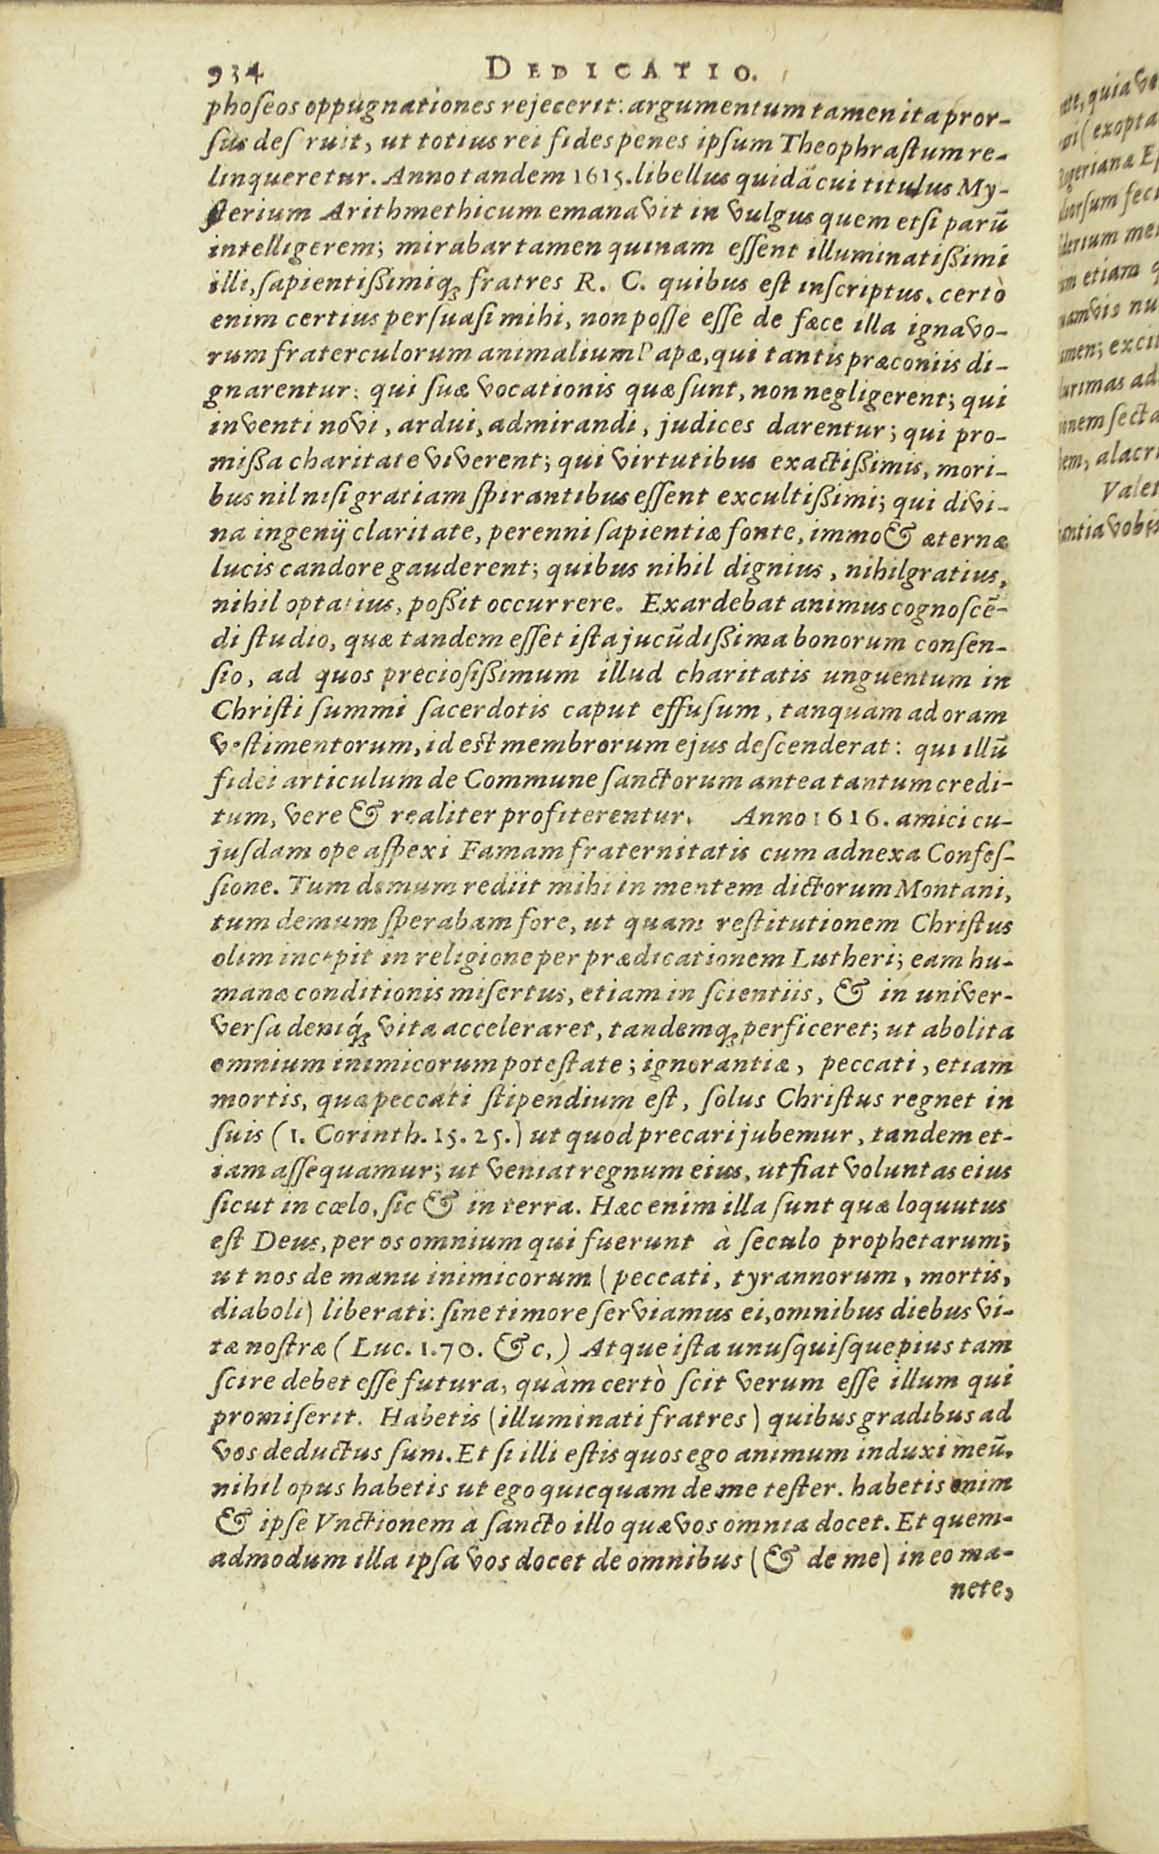 934 DEDICATIO.
phoſeos oppugnationes rejecerit: argumentum tamen ita pror-
ſus deſ ruit, ut totius rei fides penes ipſum Theophraſtum re-
linqueretur. Anno tandem 1615. libellus quidã cui titulus My-
ſterium Arithmethicum emanavit in vulgus quem etſi parũ
intelligerem; mirabar tamen quinam eſſent illuminatißimi
illi, ſapientißimiq́; fratres R. C. quibus eſt inſcriptus. certò
enim certius perſuaſi mihi, non poſſe eſſe de fæce illa ignavo-
rum fraterculorum animalium Papæ, qui tantis præconiis di-
gnarentur: qui ſuæ vocationis quæ ſunt, non negligerent; qui
inventi novi, ardui, admirandi, judices darentur; qui pro-
mißa charitate viverent; qui virtutibus exactißimis, mori-
bus nil niſi gratiam ſpirantibus eſſent excultißimi; qui divi-
na ingenij claritate, perenni ſapientiæ fonte, immo & æternæ
lucis candore gauderent; quibus nihil dignius, nihil gratius,
nihil optatius, poßit occurrere. Exardebat animus cognoſcẽ-
di ſtudio, quæ tandem eſſet iſta jucũdißima bonorum conſen-
ſio, ad quos precioſißimum illud charitatis unguentum in
Chriſti ſummi ſacerdotis caput effuſum, tanquam ad oram
veſtimentorum, id est membrorum ejus deſcenderat: qui illũ
fidei articulum de Commune ſanctorum antea tantum credi-
tum, vere & realiter profiterentur. Anno 1616. amici cu-
juſdam ope aſpexi Famam fraternitatis cum adnexa Confeſ-
ſione. Tum demum rediit mihi in mentem dictorum Montani,
tum demum ſperabam fore, ut quam reſtitutionem Chriſtus
olim incepit in religione per prædicationem Lutheri; eam hu-
manæ conditionis miſertus, etiam in ſcientiis, & in univer-
verſa deniq́; vita acceleraret, tandemq; perficeret; ut abolita
omnium inimicorum poteſtate; ignorantiæ, peccati, etiam
mortis, qua peccati ſtipendium eſt, ſolus Chriſtus regnet in
ſuis (1. Corinth. 15. 25.) ut quod precari jubemur, tandem et-
iam aſſequamur; ut veniat regnum eius, ut fiat voluntas eius
ſicut in cœlo, ſic & in terra. Hæc enim illa ſunt quæ loquutus
eſt Deus, per os omnium qui fuerunt à ſeculo prophetarum;
ut nos de manu inimicorum (peccati, tyrannorum, mortis,
diaboli) liberati: ſine timore ſerviamus ei, omnibus diebus vi-
tæ noſtræ (Luc. 1.70. &c,) Atque iſta unuſquiſque pius tam
ſcire debet eſſe futura, quàm certò ſcit verum eſſe illum qui
promiſerit. Habetis (illuminati fratres) quibus gradibus ad
vos deductus ſum. Et ſi illi eſtis quos ego animum induxi meũ,
nihil opus habetis ut ego quicquam de me teſter. habetis enim
& ipſe Vnctionem à ſancto illo quæ vos omnia docet. Et quem-
admodum illa ipſa vos docet de omnibus (& de me) in eo ma-
nete,
quia
(exopta
ſum
etiam
nu
men;
ad
alacri
vobis